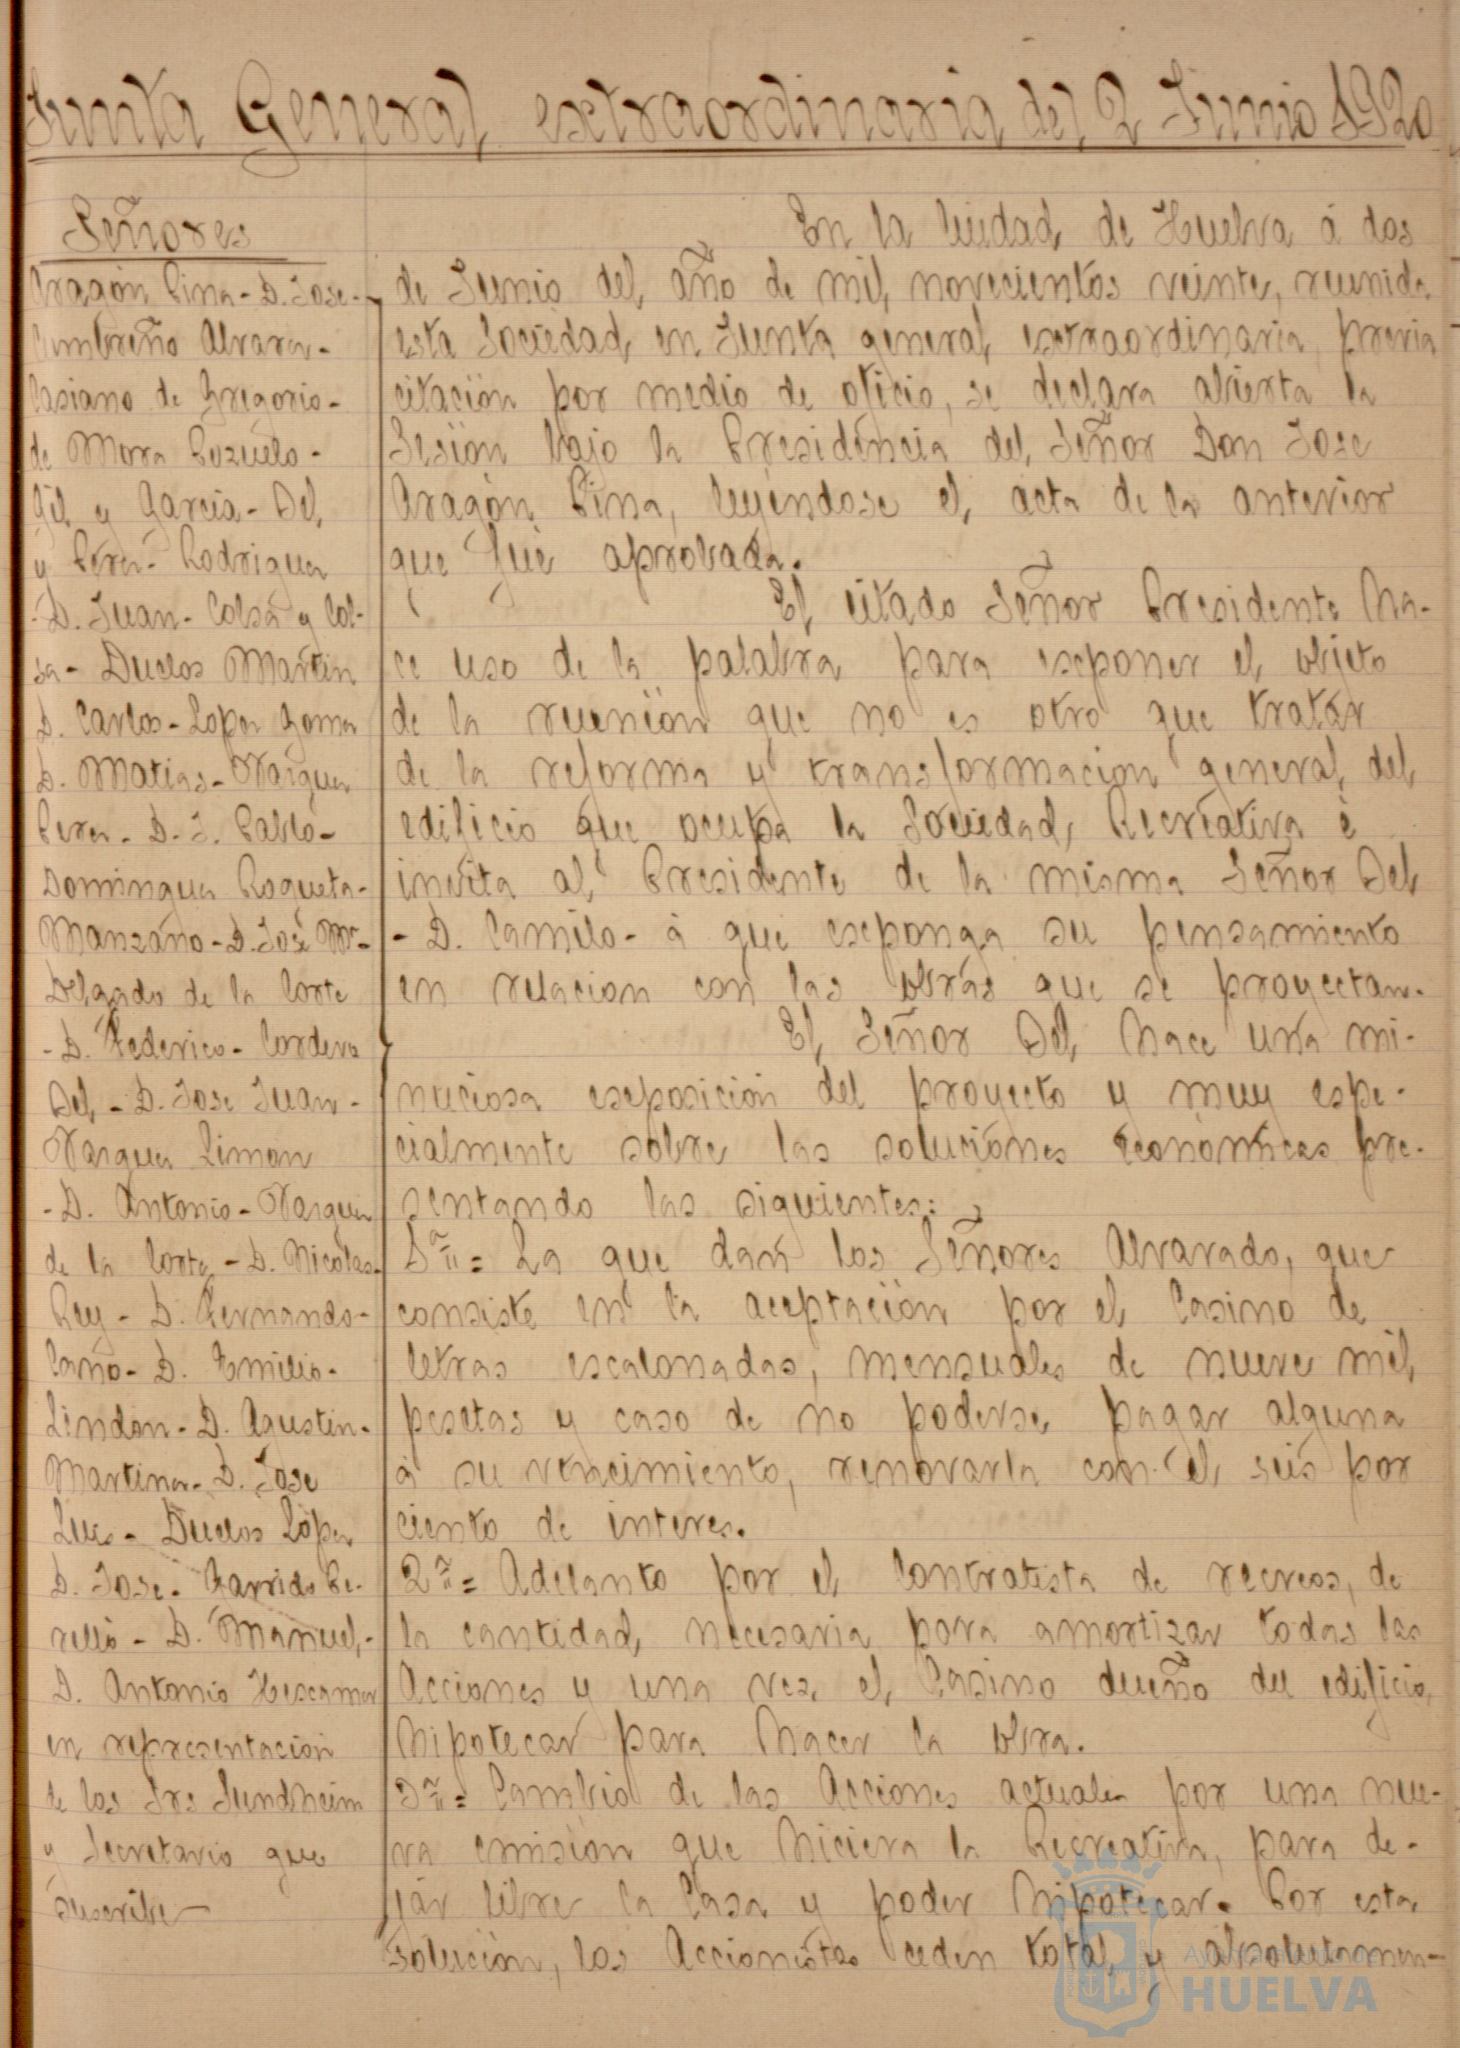 Junta General extraordinaria del 2 Junio 1920
Señores
Aragón Pina - D. Jose -
Cumbreño Alvarez -
Casiano de Gregorio -
de Mora Pozuelo -
Gil y García - Del
y Perez - Rodriguez
- D. Juan - Colsa y Col-
sa - Duclos Martin
D. Carlos - Lopez Gomez
D. Matias - Vazquez
Perez - D. J. Pablo -
Dominguez Roqueta -
Manzano - D. José Mª -
Delgado de la Corte
- D. Federico - Cordero
Del - D. Jose Juan -
Vazquez Limon
- D. Antonio - Vazquez
de la Corte - D. Nicolas -
Rey - D. Fernando -
Cano - D. Emilio -
Lindon - D. Agustin -
Martinez - D. Jose
Luis - Duclos López
D. Jose - Garrido Pe-
relló - D. Manuel -
D. Antonio
en representación
de los Srs Sundheim
y Secretario que
suscribe
En la Ciudad de Huelva á dos
de Junio del año de mil novecientos veinte, reunida
esta Sociedad en Junta general extraordinaria, previa
citación por medio de oficio, se declara abierta la
Sesión bajo la Presidencia del Señor Don Jose
Aragón Pina, leyéndose el acta de la anterior
que fué aprobada.
El citado Señor Presidente ha-
ce uso de la palabra para exponer el objeto
de la reunión que no es otro que tratar
de la reforma y transformacion general del
edificio que ocupa la Sociedad Recreativa é
invita al Presidente de la misma Señor Del
- D. Camilo - á que exponga su pensamiento
en relacion con las obras que se proyectan.
El Señor Del hace una mi-
nuciosa exposición del proyecto y muy espe-
cialmente sobre las soluciones económicas pre-
sentando las siguientes:
1ª = La que dan los Señores Alvarado, que
consiste en la aceptación por el Casino de
letras escalonadas, mensuales de nueve mil
pesetas y caso de no poderse pagar alguna
á su vencimiento, renovarla con el seis por
ciento de interes.
2ª = Adelanto por el Contratista de recreos, de
la cantidad necesaria para amortizar todas las
Acciones y una vez el Casino dueño del edificio,
hipotecar para hacer la obra.
3ª = Cambio de las Acciones actuales por una nue-
va emisión que hiciera la Recreativa, para de-
jar libre la Casa y poder hipotecar. Por esta
solución, los Accionistas ceden total y absolutamen-
HUELVA